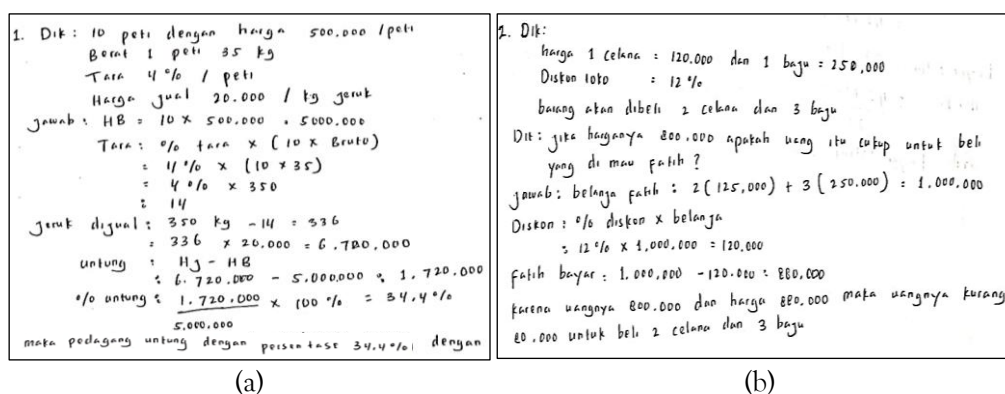 1. Dik : 10 peti dengan harga 500.000 /peti
Berat 1 peti 35 kg
Tara 4% / peti
Harga jual 20.000 / kg jeruk
jawab : HB = 10 x 500.000 = 5000.000
Tara : % tara x ( 10 x Bruto)
= 4% x (10 x 35)
= 4% x 350
= 14
jeruk dijual : 350 kg - 14 = 336
= 336 x 20.000 = 6.720.000
untung : Hj - HB
: 6.720.000 - 5.000.000 : 1.720.000
% untung : 1.720.000 x 100 % = 34.4%
5.000.000
maka pedagang untung dengan persentase 34.4% dengan
(a)
2. Dik:
harga 1 celana = 120.000 dan 1 baju = 250,000
Diskon toko = 12%
barang akan dibeli 2 celana dan 3 baju
Dit : jika harganya 800.000 apakah uang itu cukup untuk beli
yang di mau fatih ?
jawab : belanja fatih : 2(125,000) + 3(250.000) = 1.000.000
Diskon : % diskon x belanja
: 12% x 1,000.000 = 120.000
fatih bayar : 1.000,000 - 120.000 : 880,000
karena uangnya 800.000 dan harga 880.000 maka uangnya kurang
80.000 untuk beli 2 celana dan 3 baju
(b)